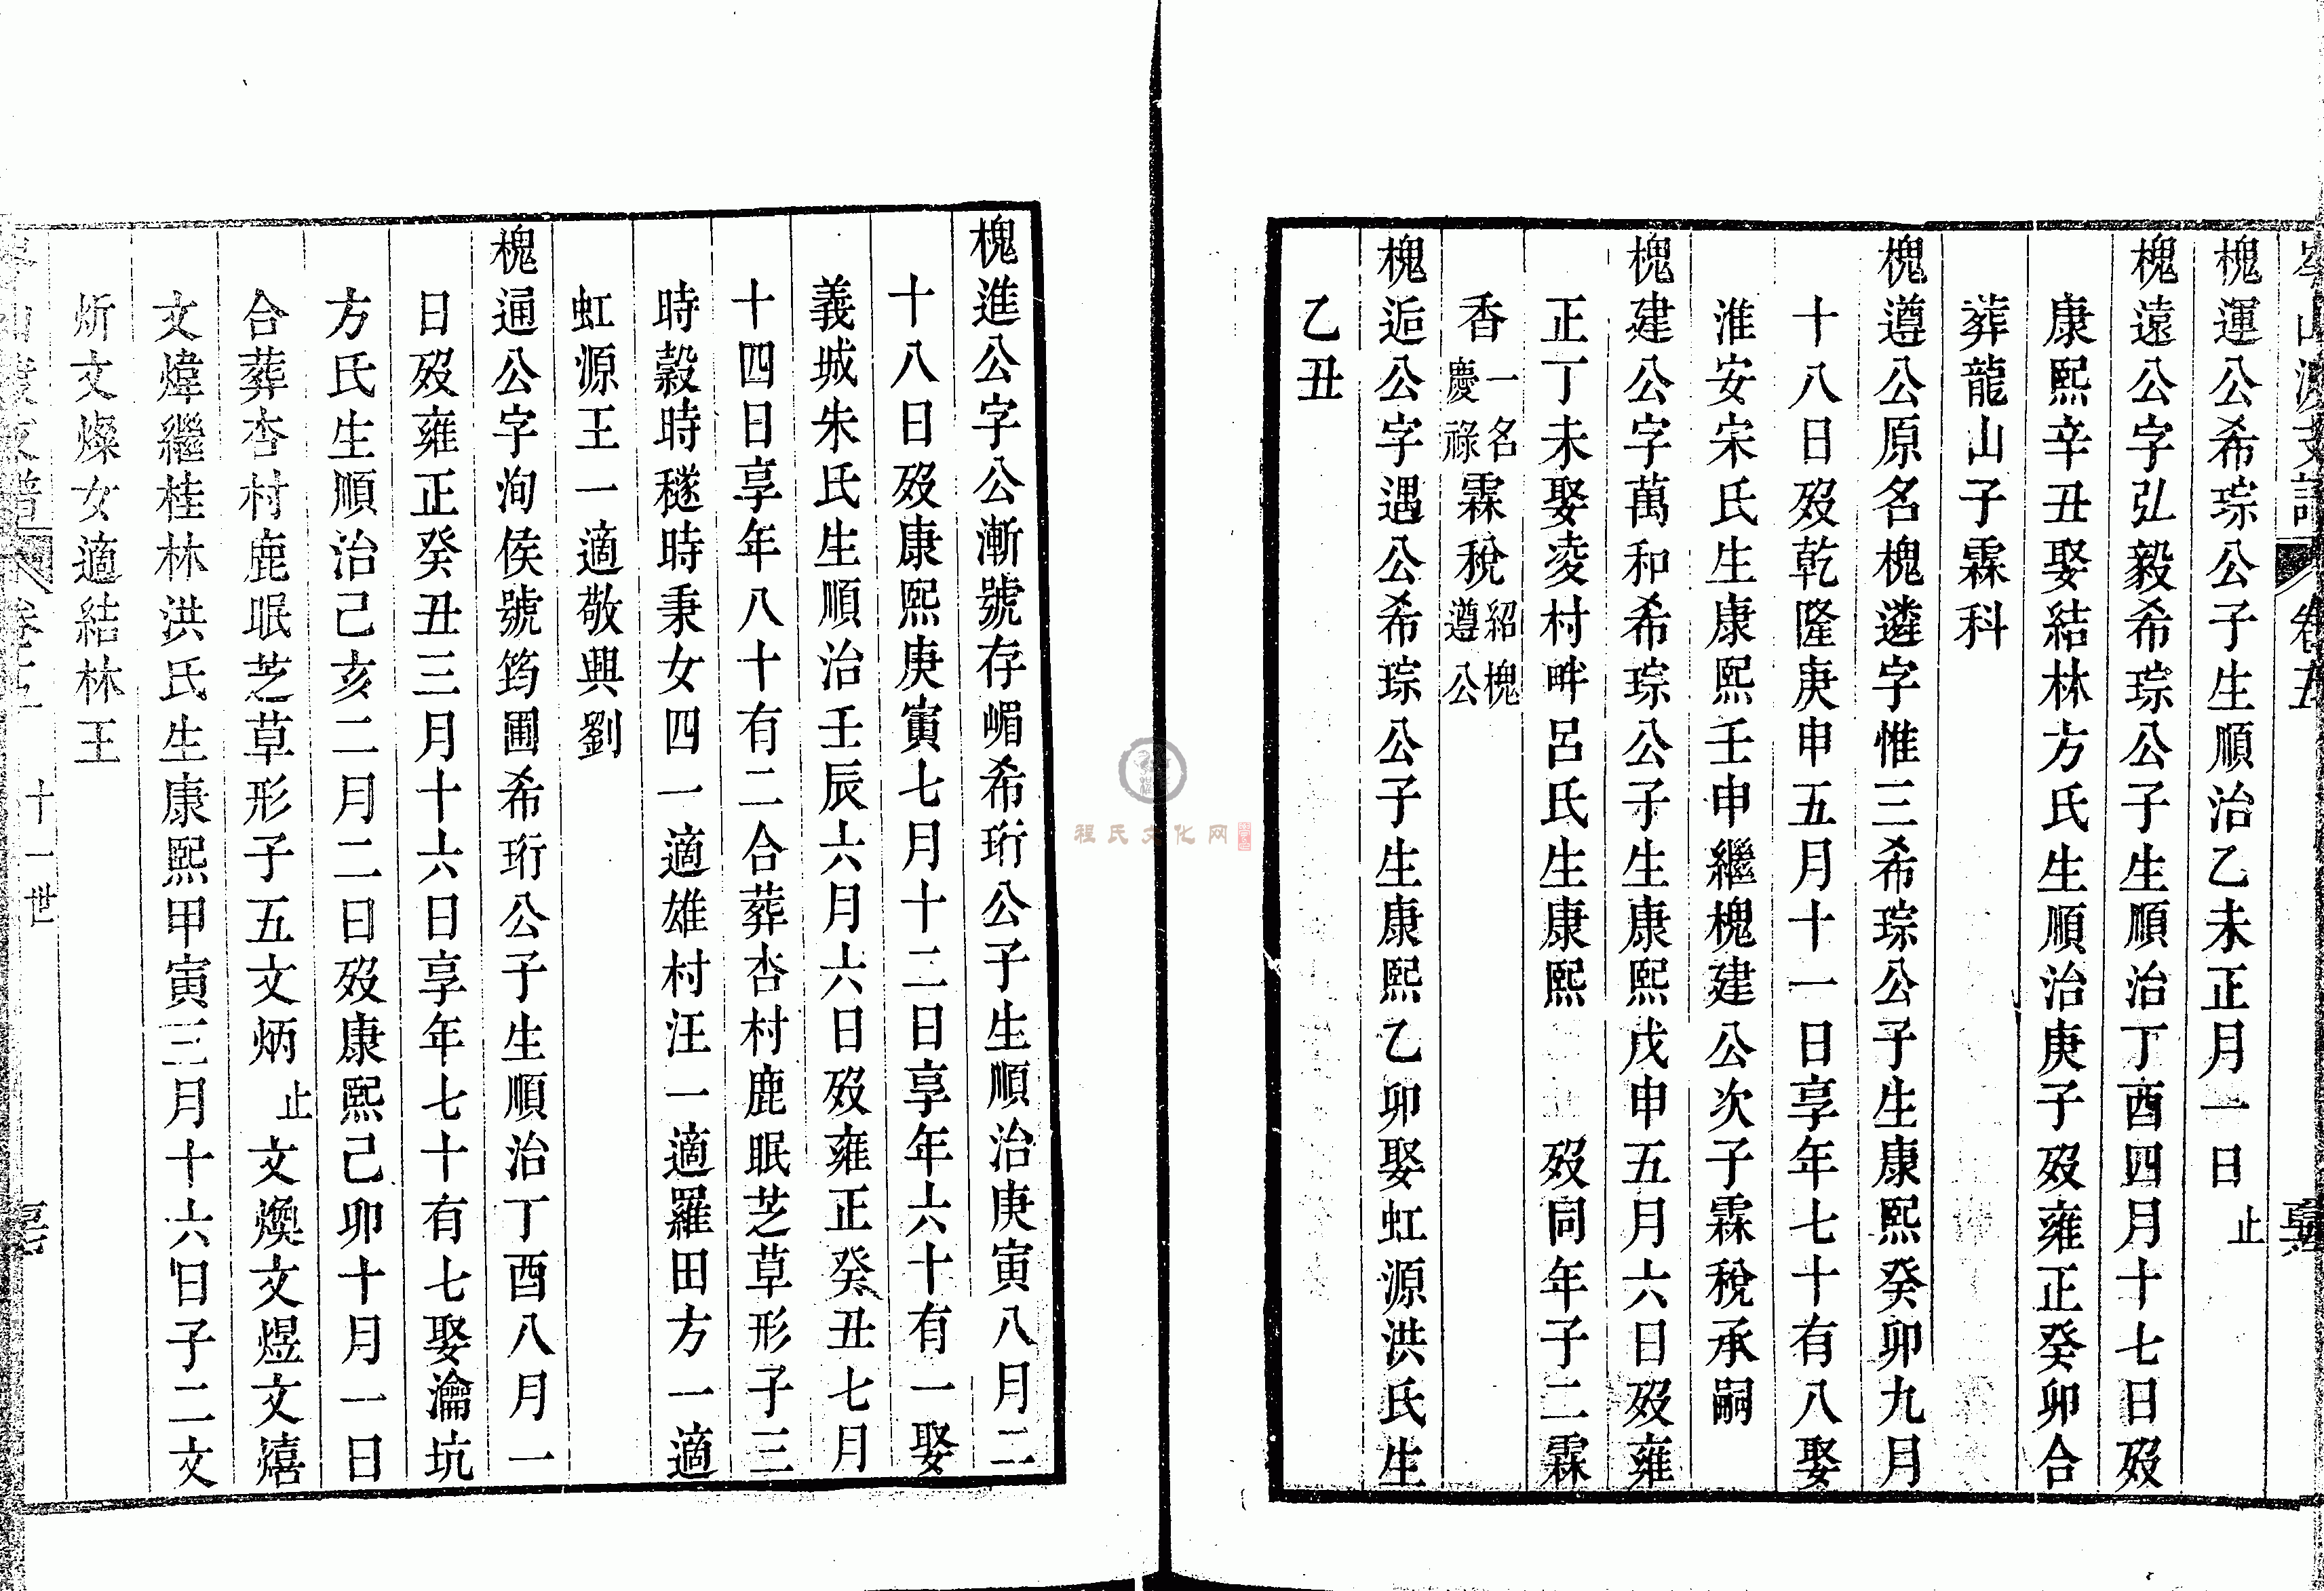 槐運公希琮公子生順治乙未正月一日止
槐遠公字弘毅希琮公子生順治丁酉四月十七日歿
康熙辛丑娶結林方氏生順治庚子歿雍正癸卯合
葬龍山子霖科
槐遵公原名槐遴字惟三希琮公子生康熙癸卯九月
十八日歿乾隆庚申五月十一日享年七十有八娶
淮安宋氏生康熙壬申繼槐建公次子霖稅承嗣
槐建公字萬和希琮公子生康熙戊申五月六日歿雍
正丁未娶凌村畔呂氏生康熙 歿同年子二霖
香一名慶祿霖稅紹槐遵公
槐逅公字遇公希琮公子生康熙乙卯娶虹源洪氏生
乙丑
槐進公字公漸號存嵋希珩公子生順治庚寅八月二
十八日歿康熙庚寅七月十二日享年六十有一娶
義城朱氏生順治壬辰六月六日歿雍正癸丑七月
十四日享年八十有二合葬杏村鹿眠芝草形子三
時穀時穟時秉女四一適雄村汪一適羅田方一適
虹源王一適敬興劉
槐通公字洵侯號筠圃希珩公子生順治丁酉八月一
日歿雍正癸丑三月十六日享年七十有七娶瀹坑
方氏生順治己亥二月二日歿康熙己卯十月一日
合葬杏村鹿眠芝草形子五文炳止文煥文煜文熺
文煒繼桂林洪氏生康熙甲寅三月十六日子二文
炘文燦女適結林王
十一世
程氏文化网